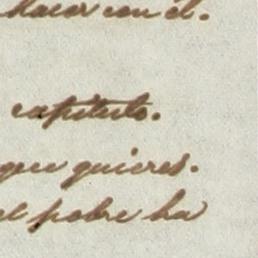 hacer con él.
capitulo.
que quieres.
el pobre ha